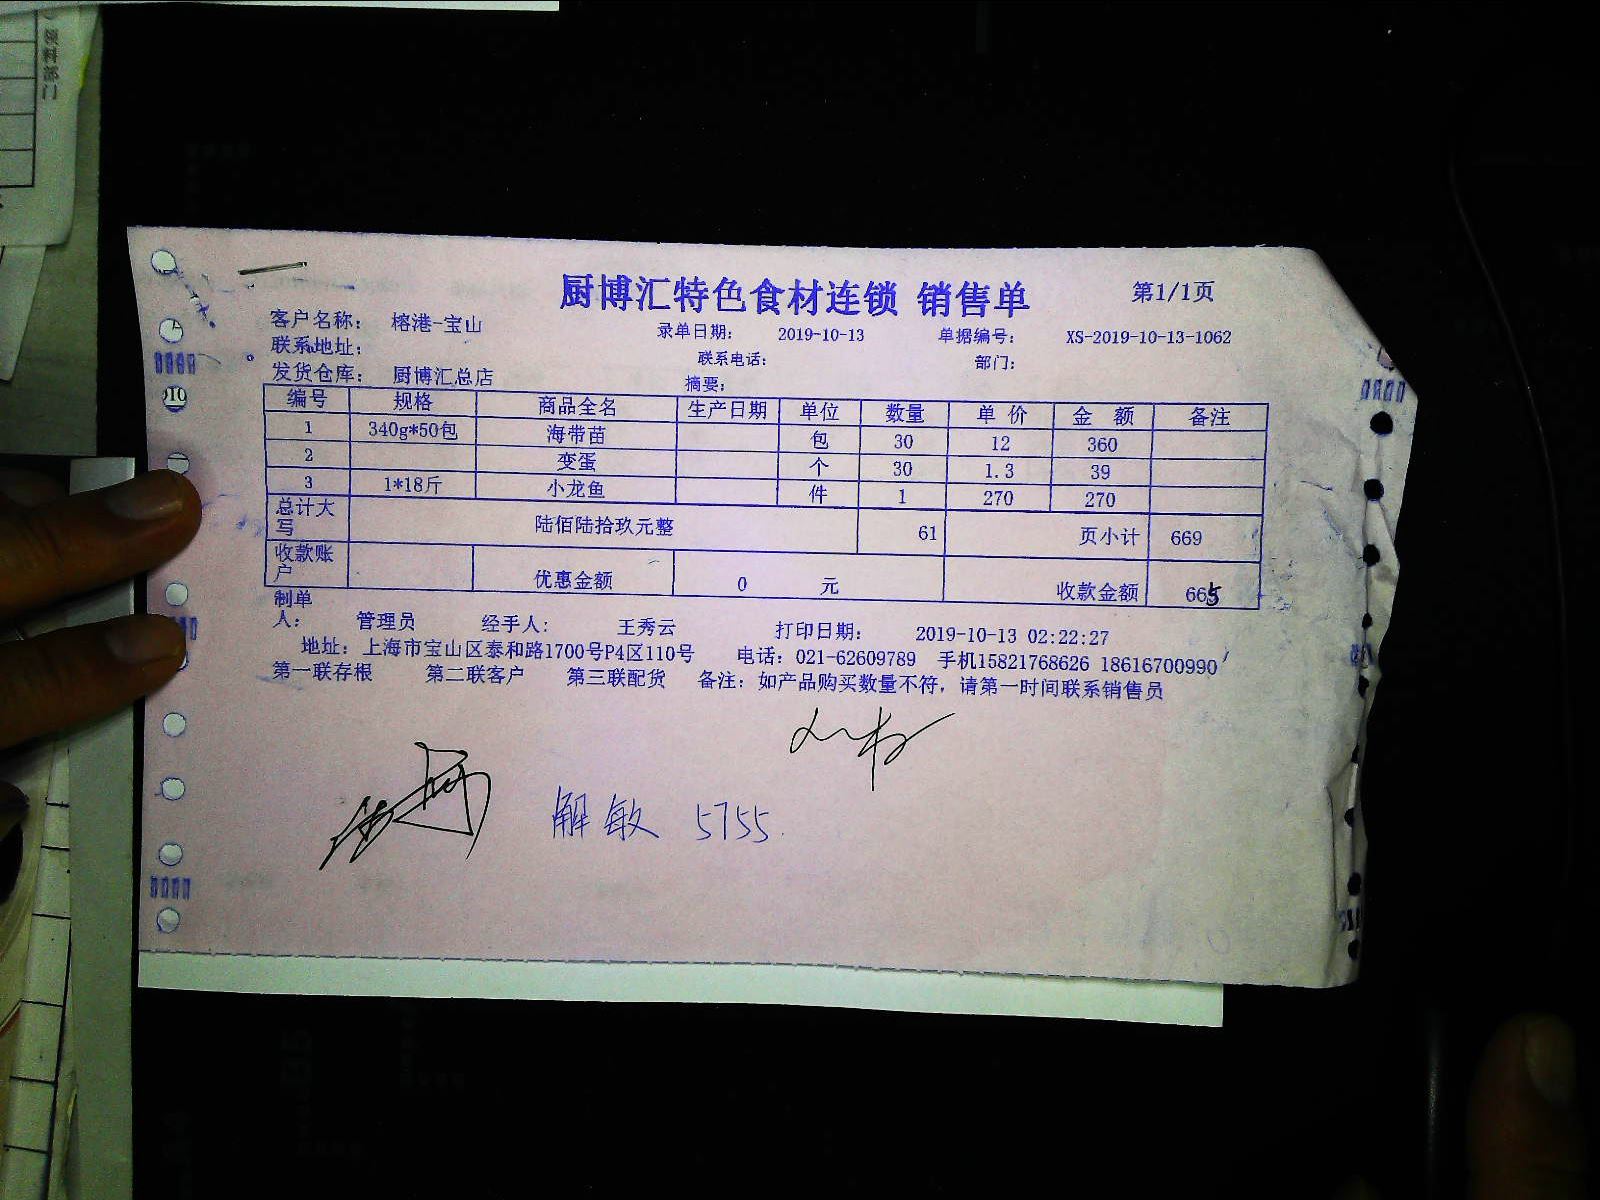 领料部门
厨博汇特色食材连锁 销售单
第1/1页
客户名称: 榕港-宝山 录单日期: 2019-10-13 单据编号: XS-2019-10-13-1062
联系地址: 联系电话: 部门:
发货仓库: 厨博汇总店 摘要:
编号 规格 商品全名 生产日期 单位 数量 单 价 金 额 备注
1 340g*50包 海带苗 包 30 12 360
2 变蛋 个 30 1.3 39
3 1*18斤 小龙鱼 件 1 270 270
总计大写 陆佰陆拾玖元整 61 页小计 669
收款账户 优惠金额 0 元 收款金额 665
制单人: 管理员 经手人: 王秀云 打印日期: 2019-10-13 02:22:27
地址: 上海市宝山区泰和路1700号P4区110号 电话: 021-62609789 手机15821768626 18616700990
第一联存根 第二联客户 第三联配货 备注: 如产品购买数量不符, 请第一时间联系销售员
解敏 5755